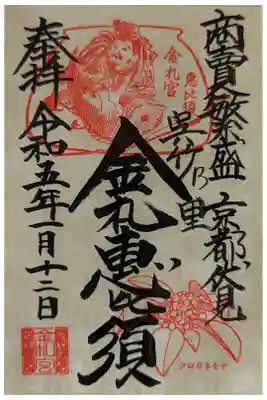 商賣繁盛 京都伏見
呉竹乃里
金札宮
恵比須
金札恵比須
奉拝 令和五年一月十二日
金札宮
クロガネモチ